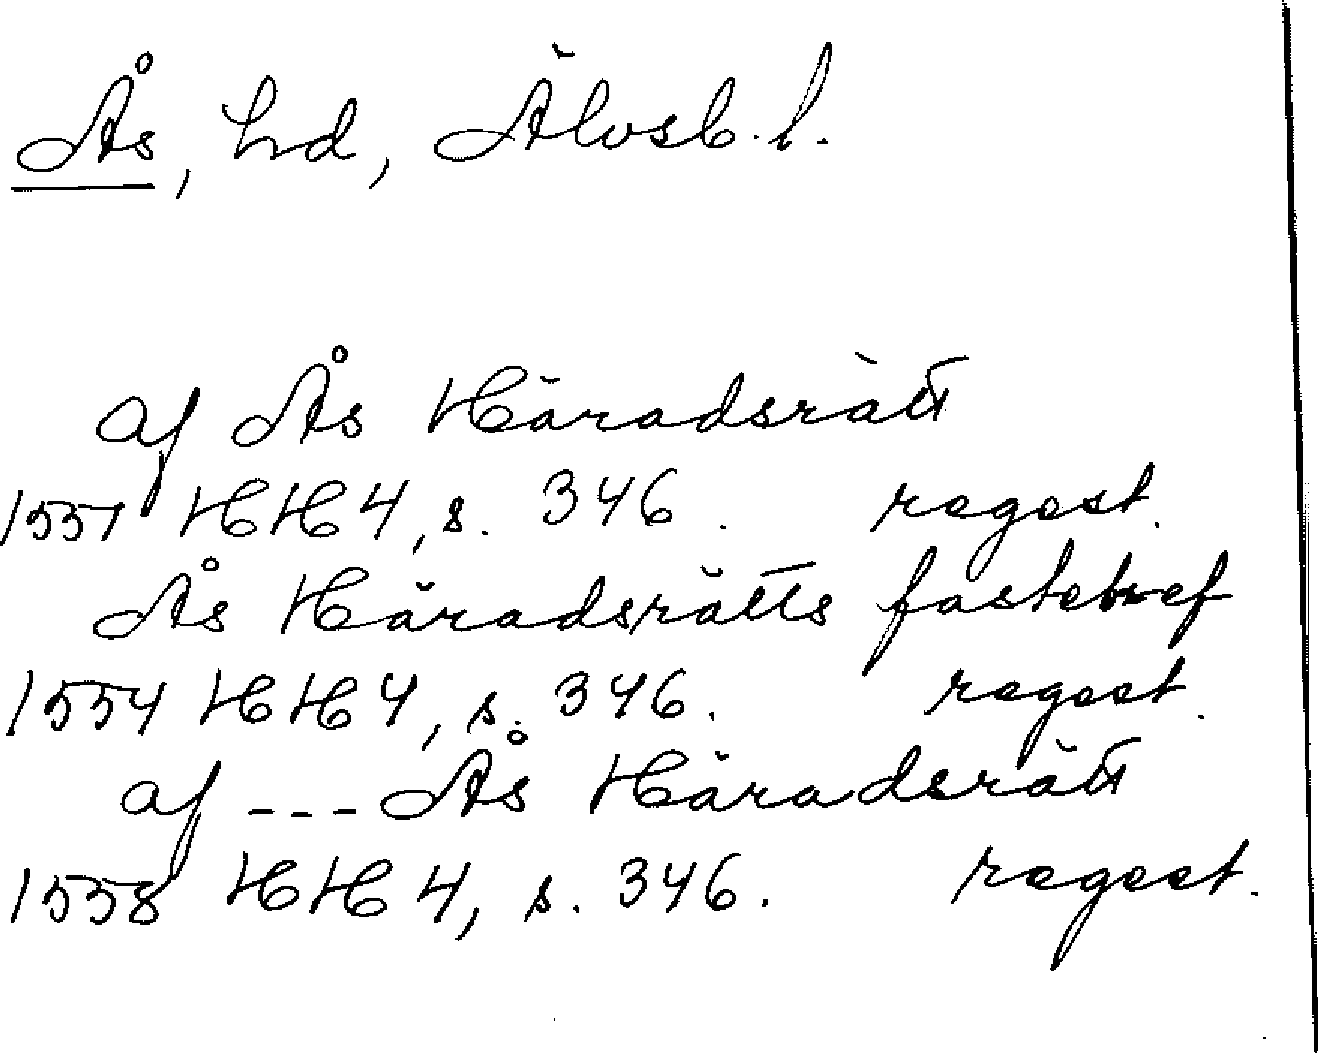 Ås, hd, Älvsb. l.
af Ås Häradsrätt
1551 HH 4, s. 346. regest.
Ås Häradsrätts fastebref
1554 HH 4, s. 346. regest.
af --- Ås Häradsrätt
1558 HH 4, s. 346. regest.